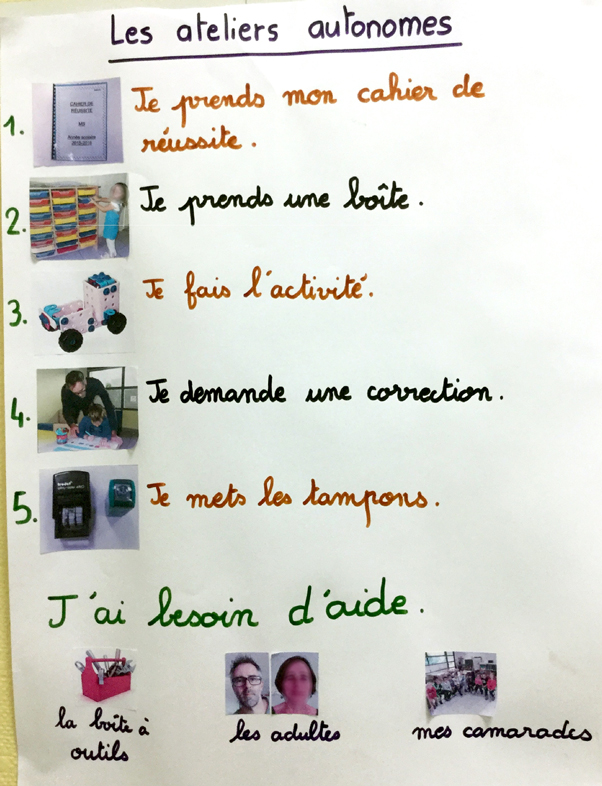 Les ateliers autonomes
1.
CAHIER DE
RÉUSSITE
MS
Je prends mon cahier de
réussite.
2.
Je prends une boîte.
3.
Je fais l'activité.
4.
Je demande une correction.
5.
Je mets les tampons.
J'ai besoin d'aide.
la boîte à
outils
les adultes
mes camarades